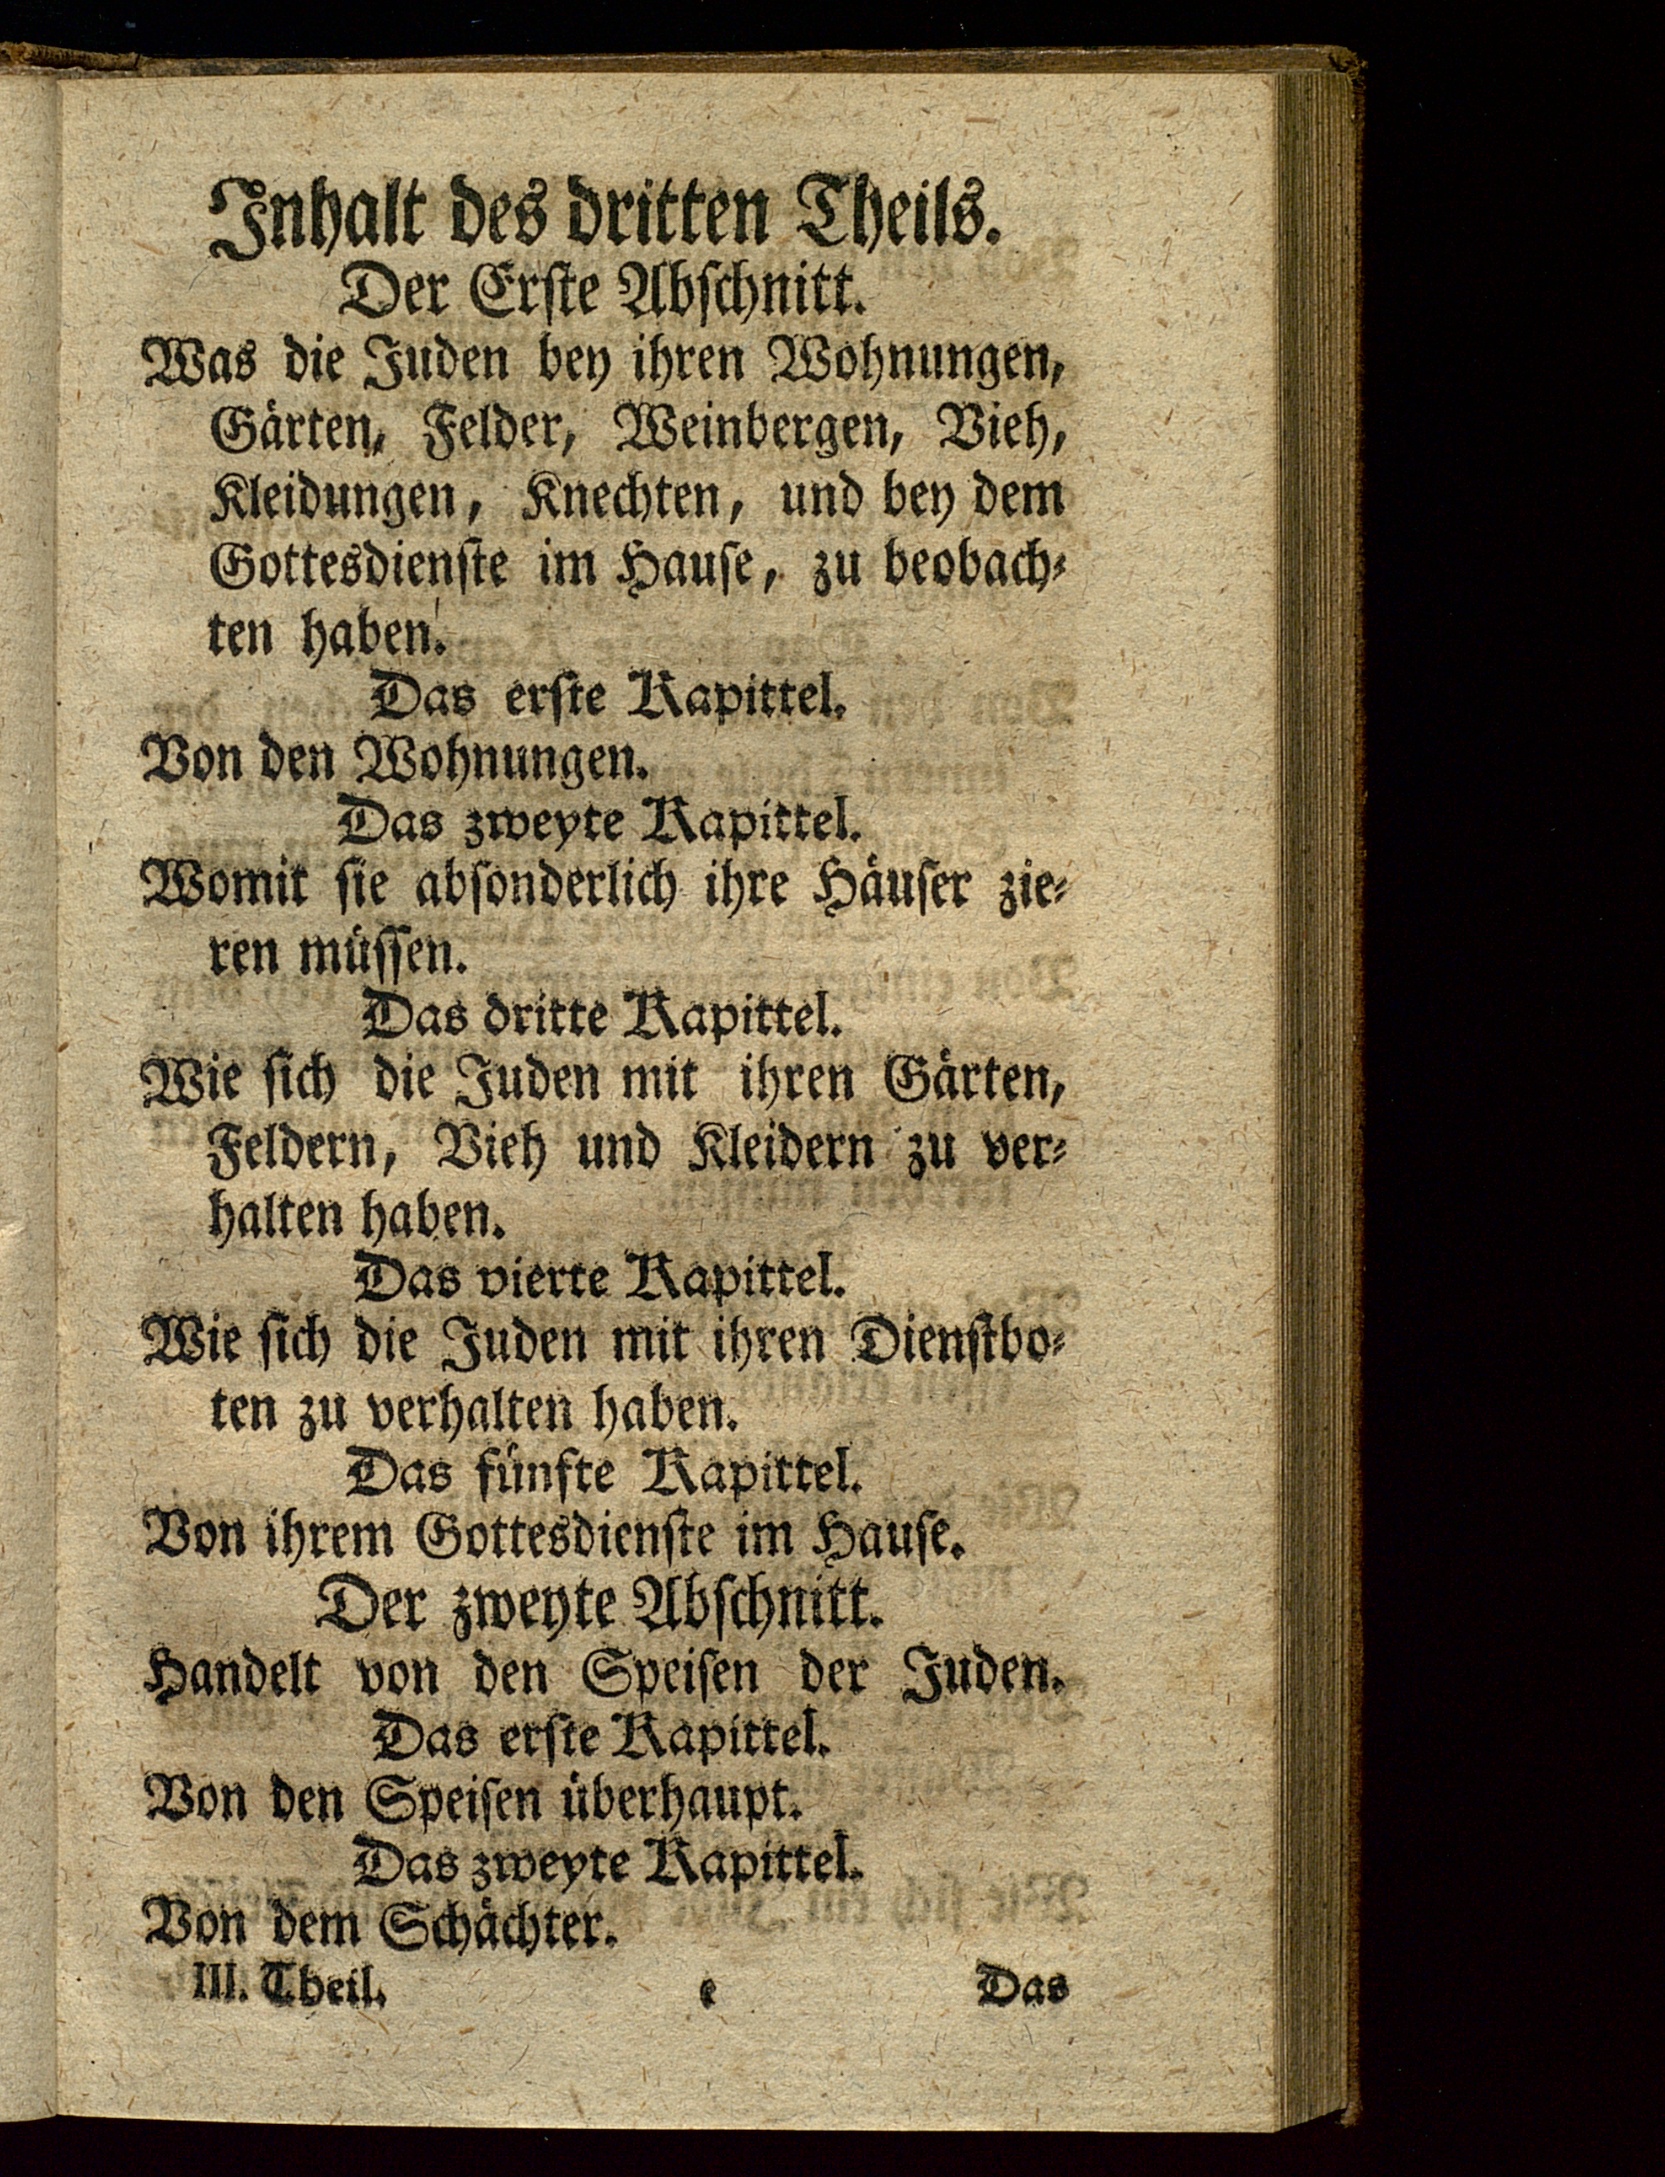 Inhalt des dritten Theils.
Der Erſte Abſchnitt.
Was die Juden bey ihren Wohnungen,
Gärten, Felder, Weinbergen, Vieh,
Kleidungen, Knechten, und bey dem
Gottesdienſte im Hauſe, zu beobach⸗
ten haben.
Das erſte Kapittel.
Von den Wohnungen.
Das zweyte Kapittel.
Womit ſie abſonderlich ihre Häuſer zie⸗
ren müſſen.
Das dritte Kapittel.
Wie ſich die Juden mit ihren Gärten,
Feldern, Vieh und Kleidern zu ver⸗
halten haben.
Das vierte Kapittel.
Wie ſich die Juden mit ihren Dienſtbo⸗
ten zu verhalten haben.
Das fünfte Kapittel.
Von ihrem Gottesdienſte im Hauſe.
Der zweyte Abſchnitt.
Handelt von den Speiſen der Juden.
Das erſte Kapittel.
Von den Speiſen überhaupt.
Das zweyte Kapittel.
Von dem Schächter.
III. Theil. e Das